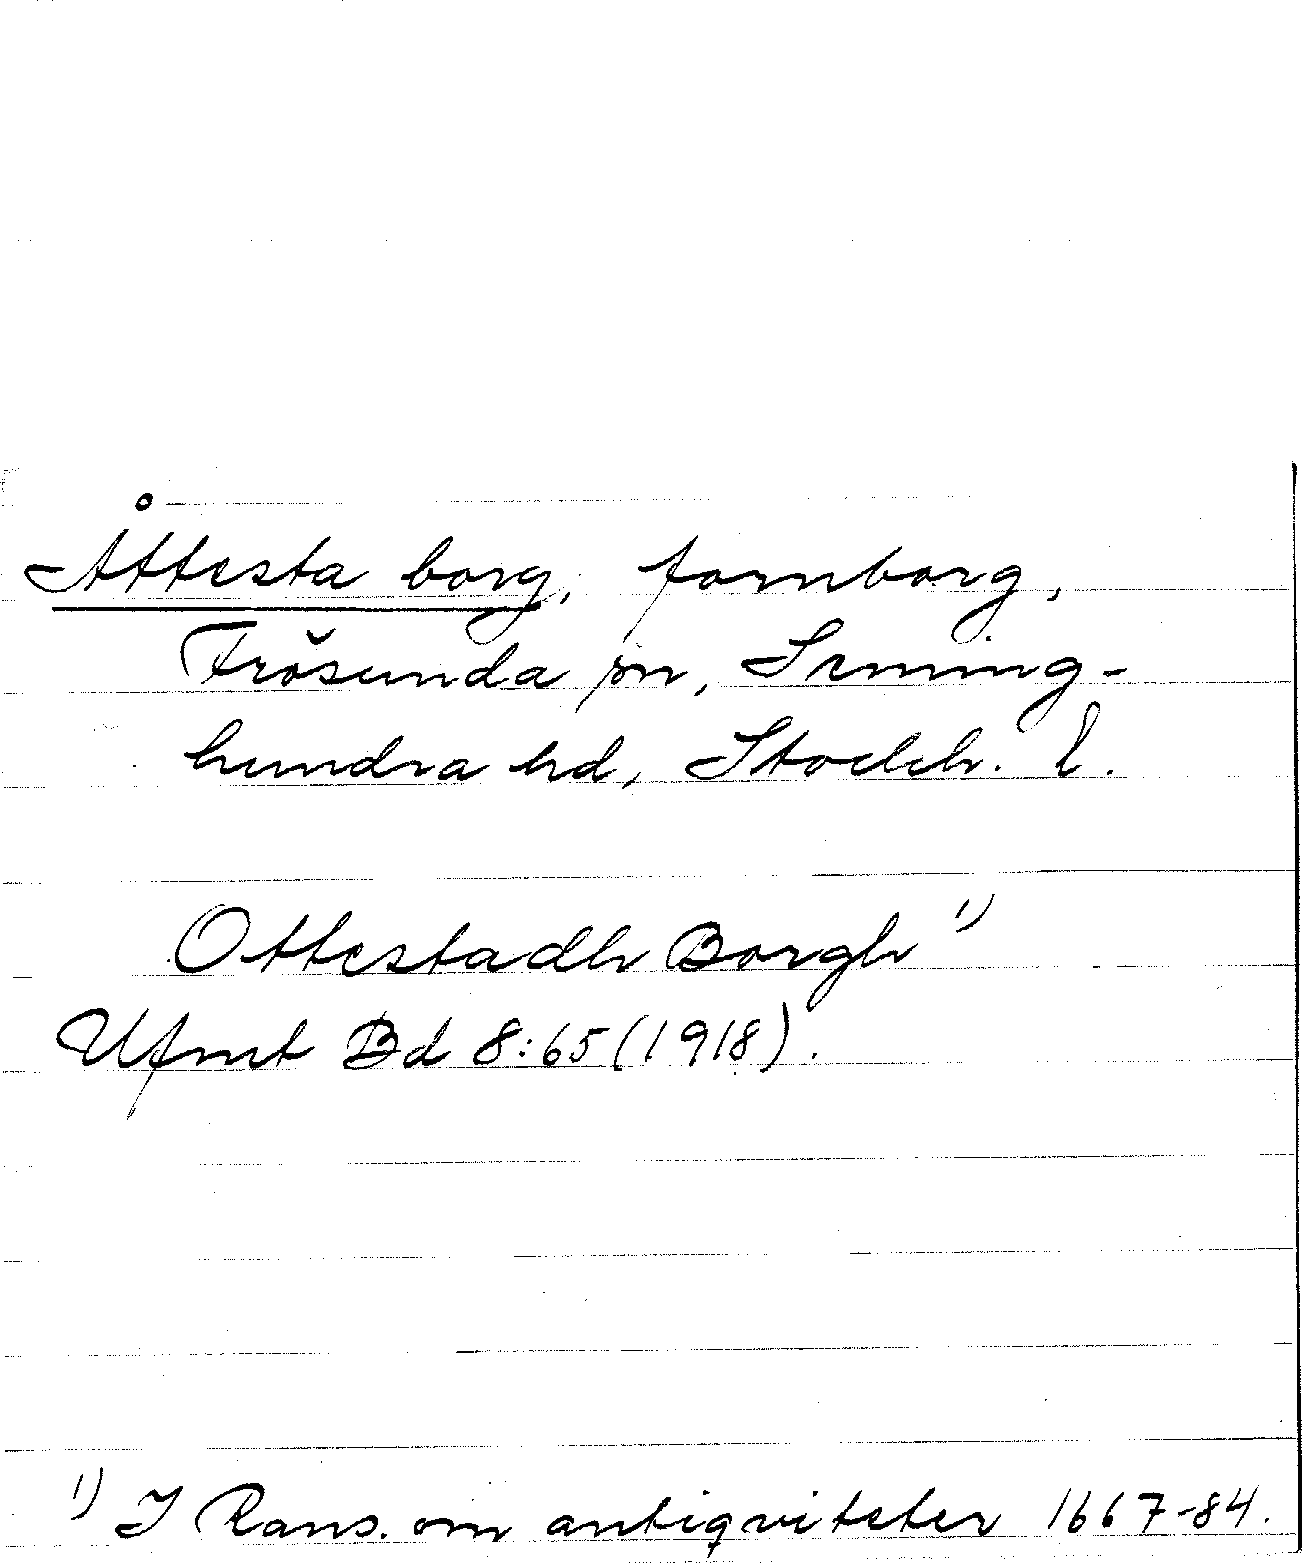 Åttesta borg, fornborg,
Frösunda sn, Seming-
hundra hd, Stockh. l.
Ottestadh Borgh 1)
Ufmt Bd 8:65 (1918).
1) I Rans. om antiqviteter 1667-84.